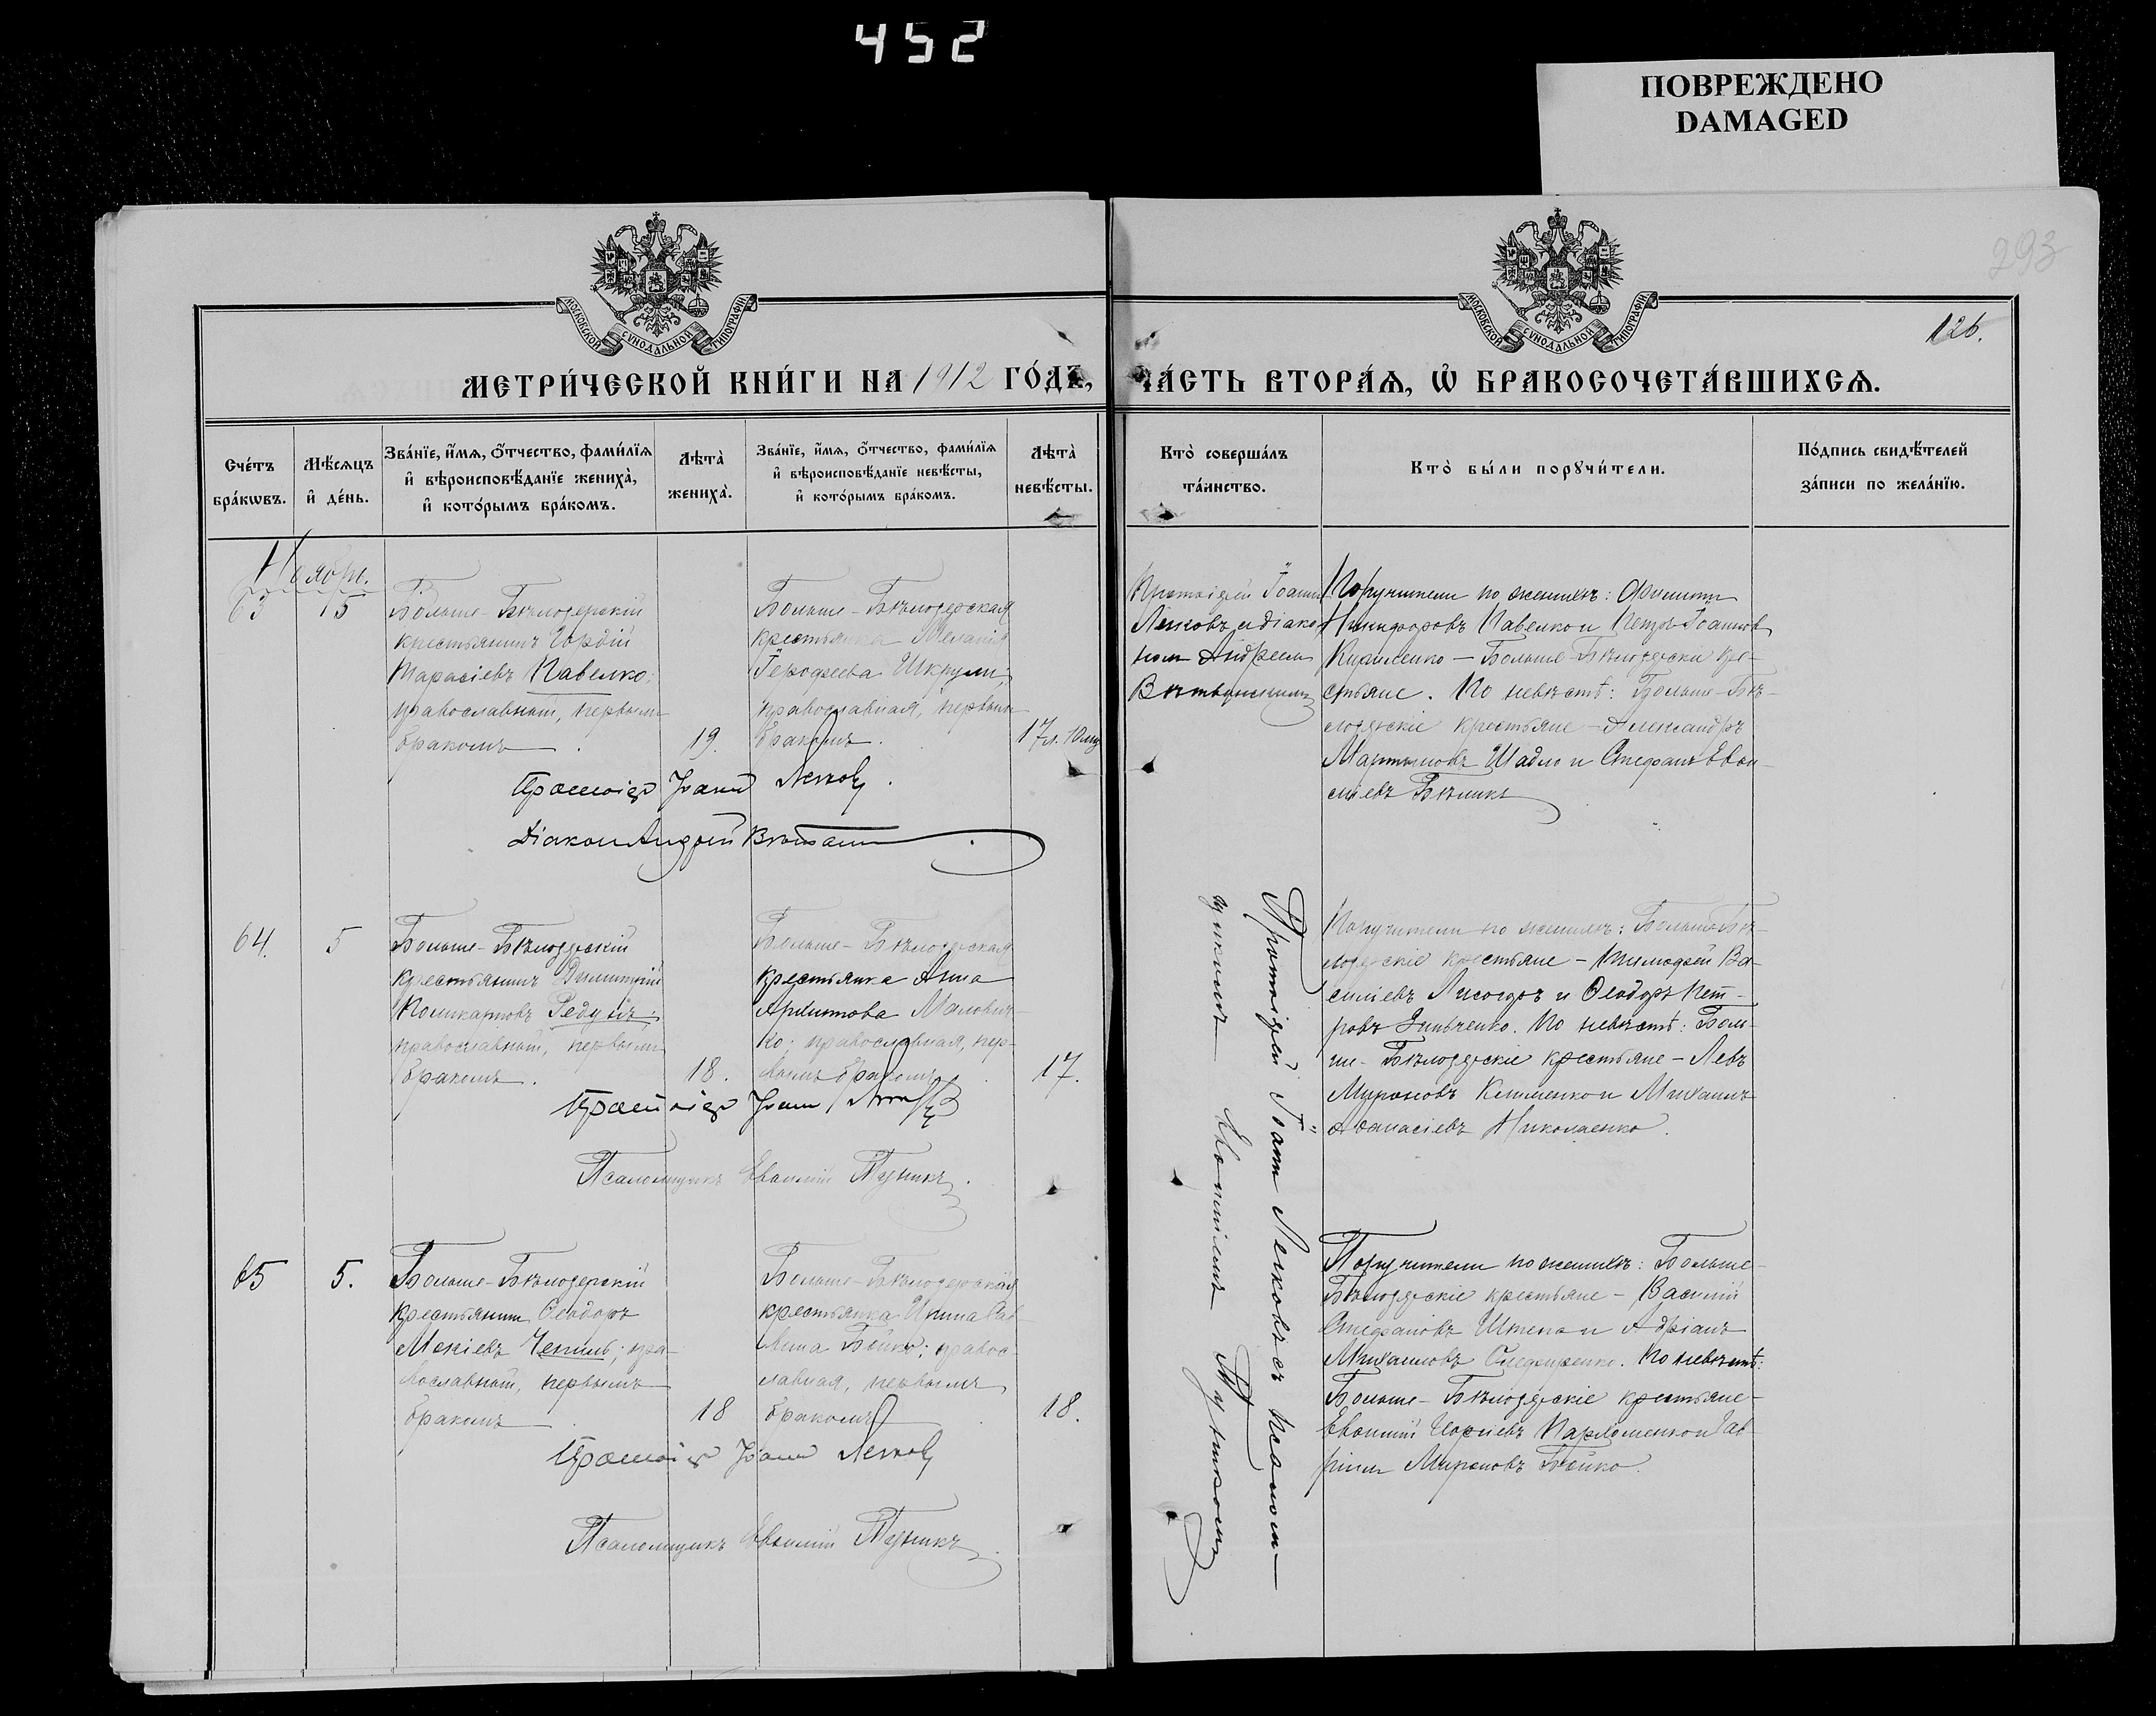 452
ПОВРЕЖДЕНО
DAMAGED
293
126.
МОСКОВСКОЙ СѴНОДАЛЬНОЙ ТИПОГРАФІИ
МОСКОВСКОЙ СѴНОДАЛЬНОЙ ТИПОГРАФІИ
МЕТРИ́ЧЕСКОЙ КНИ́ГИ НА 1912 ГО́ДЪ,
ЧА́СТЬ ВТОРА́Ѧ, Ѽ БРАКОСОЧЕТА́ВШИХСѦ.
Сче́тъ
бра́кѡвъ.
Мѣ́сѧцъ
и҆ де́нь.
Зва́нїе, и҆́мѧ, ѻ҆́тчество, фами́лїѧ
и҆ вѣроисповѣ́данїе жениха̀,
и҆ кото́рымъ бра́комъ.
Лѣта̀
жениха̀.
Зва́нїе, и҆́мѧ, ѻ҆́тчество, фами́лїѧ
и҆ вѣроисповѣ́данїе невѣ́сты,
и҆ кото́рымъ бра́комъ.
Лѣта̀
невѣ́сты.
Кто̀ соверша́лъ
та́инство.
Кто̀ бы́ли порꙋчи́тели.
По́дпись свидѣ́телей
за́писи по жела́нїю.
Ноябрь.
63
Больше-Бѣлозерскій
крестьянинъ Гордій
Тарасіевъ Павелко;
православный, первымъ
бракомъ.
19.
Больше-Бѣлозерская
крестьянка Меланія
Іероѳеева
православная, первымъ
бракомъ.
17 л. 10 мц
Протоіерей Іоаннъ
Лесковъ и діако-
номъ Андреемъ
Поручители по женихѣ: Филиппъ
Никифоровъ Павелко и Петръ Іоанновъ
Куриленко — Больше-Бѣлозерскіе кре-
стьяне. По невѣстѣ: Больше-Бѣ-
лозерскіе крестьяне — Александръ
Мартыновъ Шадло и Стефанъ Евѳи-
міевъ
Протоіер Іоанн Лесковъ.
Діаконъ Андрей
64.
5
Больше-Бѣлозерскій
крестьянинъ Димитрій
Поликарповъ Редука;
православный, первымъ
бракомъ.
18.
Больше-Бѣлозерская
крестьянка Анна
Архиппова
православная, пер-
вымъ бракомъ.
17.
Протоіерей Іоаннъ Лесковъ съ псалом-
щикомъ Евѳиміемъ
Поручители по женихѣ: Больше-Бѣ-
лозерскіе крестьяне — Тимофей Ва-
силіевъ Лисогоръ и Ѳеодоръ Пет-
ровъ Зинченко. По невѣстѣ: Боль-
ше-Бѣлозерскіе крестьяне — Левъ
Мироновъ Клименко и Михаилъ
Аѳанасіевъ Николаенко.
Протоіер Іоанн
Псаломщикъ Евѳимій
65
5.
Больше-Бѣлозерскій
крестьянинъ Ѳеодоръ
Мокіевъ Чепиль; пра-
вославный, первымъ
бракомъ
18
Больше-Бѣлозерская
крестьянка Ирина
Бойко; правос-
лавная, первымъ
бракомъ.
18.
Поручители по женихѣ: Больше-
Бѣлозерскіе крестьяне — Василій
Стефановъ Штепа и Адріанъ
Михаиловъ Сидоренко. По невѣстѣ:
Больше-Бѣлозерскіе крестьяне —
Евѳимій Пархоменко и Гав-
ріилъ Мироновъ Бойко.
Протоіер Іоанн Лесковъ
Псаломщикъ Евѳимій